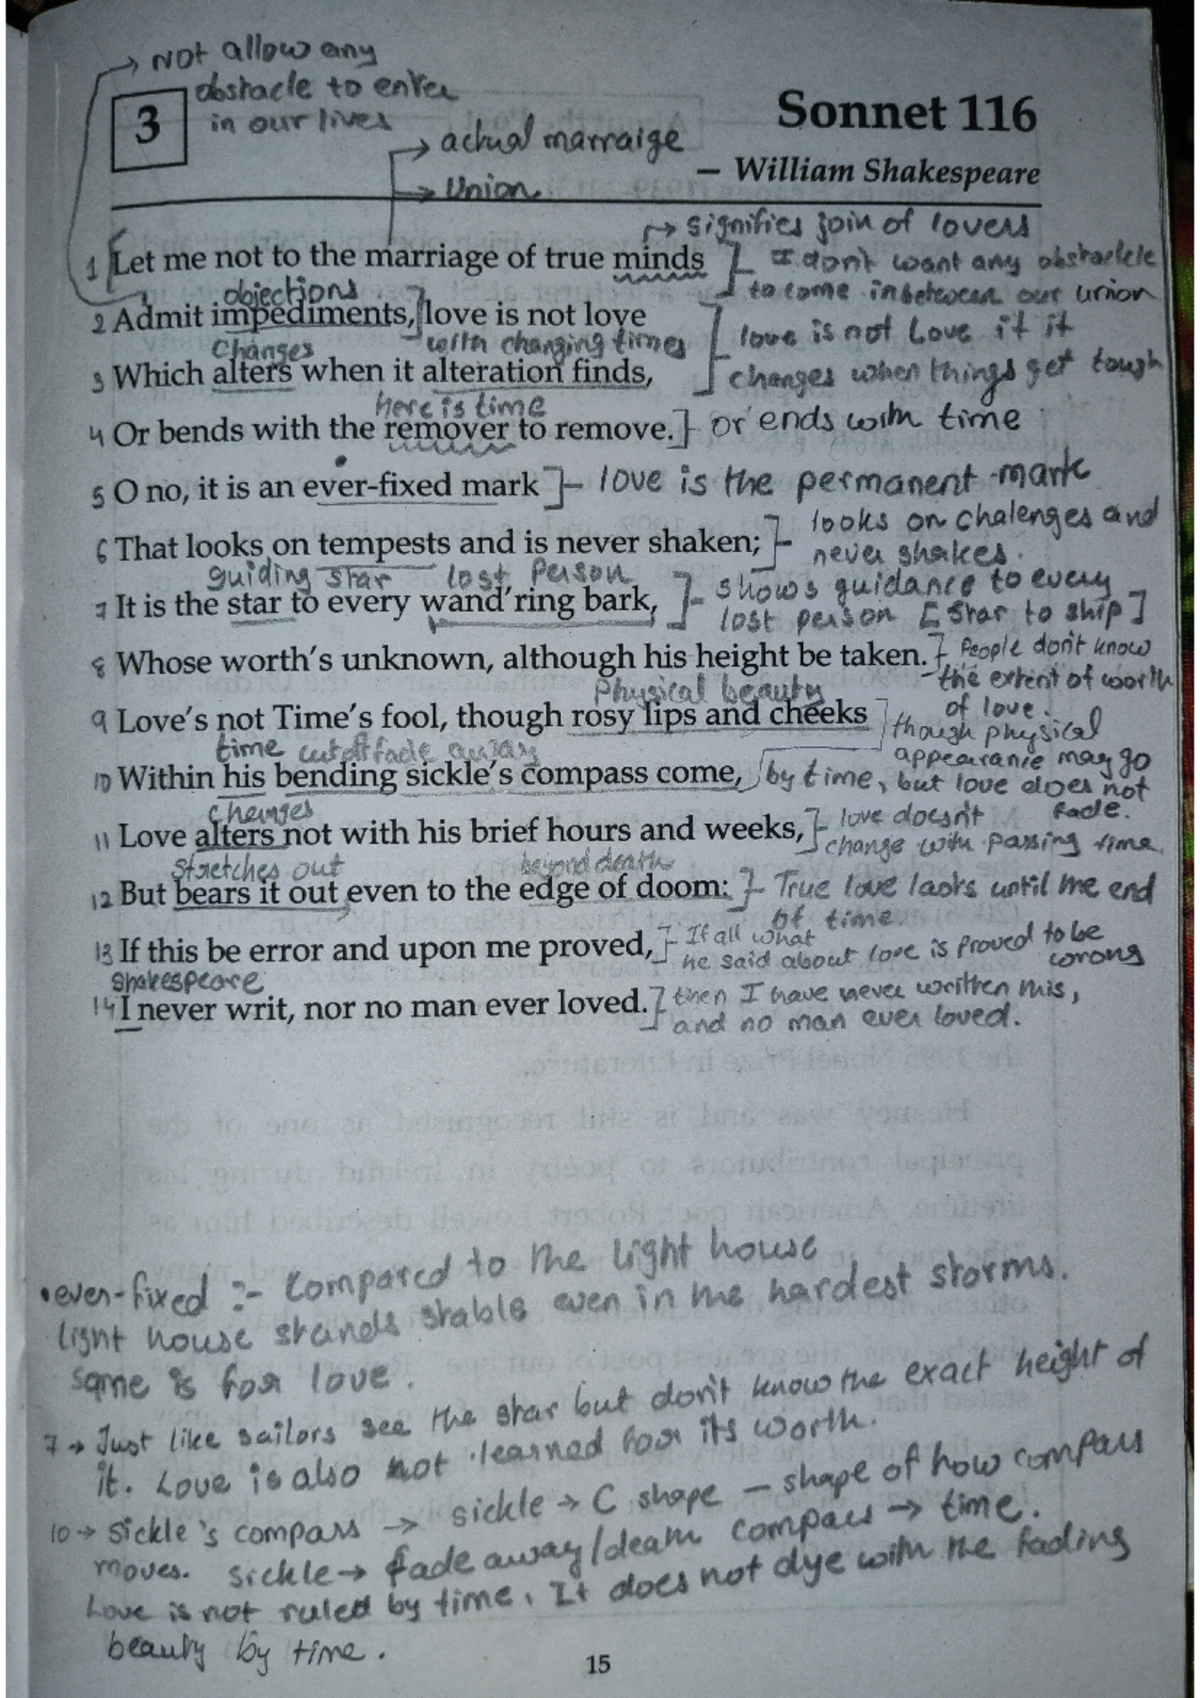 → Not allow any
obstacle to enter
in our lives
3
Sonnet 116
→ actual marraige
→ Union
— William Shakespeare
→ signifies join of lovers
1 Let me not to the marriage of true minds
I don't want any obstackle
to come inbetween our union
objections
2 Admit impediments, love is not love
with changing times
love is not Love if it
changes when things get tough
changes
3 Which alters when it alteration finds,
here is time
4 Or bends with the remover to remove.
or ends with time
5 O no, it is an ever-fixed mark
love is the permanent mark
6 That looks on tempests and is never shaken;
looks on chalenges and
never shakes.
guiding star lost person
7 It is the star to every wand'ring bark,
shows guidance to every
lost person [star to ship]
8 Whose worth's unknown, although his height be taken.
People don't know
the extent of worth
of love.
Physical beauty
9 Love's not Time's fool, though rosy lips and cheeks
though physical
appearance may go
time cut off fade away
10 Within his bending sickle's compass come,
by time, but love does not
fade.
changes
11 Love alters not with his brief hours and weeks,
love doesn't
change with passing time.
stretches out beyond death
12 But bears it out even to the edge of doom:
True love lasts until the end
of time.
13 If this be error and upon me proved,
If all what
he said about love is proved to be
wrong
shakespeare
14 I never writ, nor no man ever loved.
then I have never written this,
and no man ever loved.
• ever-fixed :- Compared to the light house
light house stands stable even in the hardest storms.
same is for love.
7 → Just like sailors see the star but don't know the exact height of
it. Love is also not learned for its worth.
10 → Sickle's compass → sickle → C shape – shape of how compass
moves. sickle → fade away/death compass → time.
Love is not ruled by time. It does not dye with the fading
beauty by time.
15